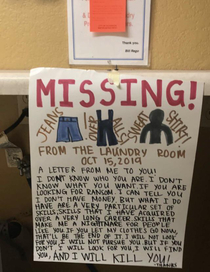 Thank you.
MISSING!
JEANS OVERALLS SWEAT SHIRT
FROM THE LAUNDRY ROOM
OCT 15, 2019
A LETTER FROM ME TO YOU!
I DON'T KNOW WHO YOU ARE. I DON'T
KNOW WHAT YOU WANT. IF YOU ARE
LOOKING FOR RANSOM. I CAN TELL YOU
I DON'T HAVE MONEY BUT WHAT I DO
HAVE ARE A VERY PARTICULAR SET OF
SKILLS. SKILLS THAT I HAVE ACQUIRED
OVER A VERY LONG CAREER. SKILLS THAT
MAKE ME A NIGHTMARE FOR PEOPLE
LIKE YOU. IF YOU LET MY CLOTHES GO NOW,
THAT'LL BE THE END OF IT. I WILL NOT LOOK
FOR YOU, I WILL NOT PURSUE YOU. BUT IF YOU
DON'T I WILL LOOK FOR YOU, I WILL FIND
YOU, AND I WILL KILL YOU!